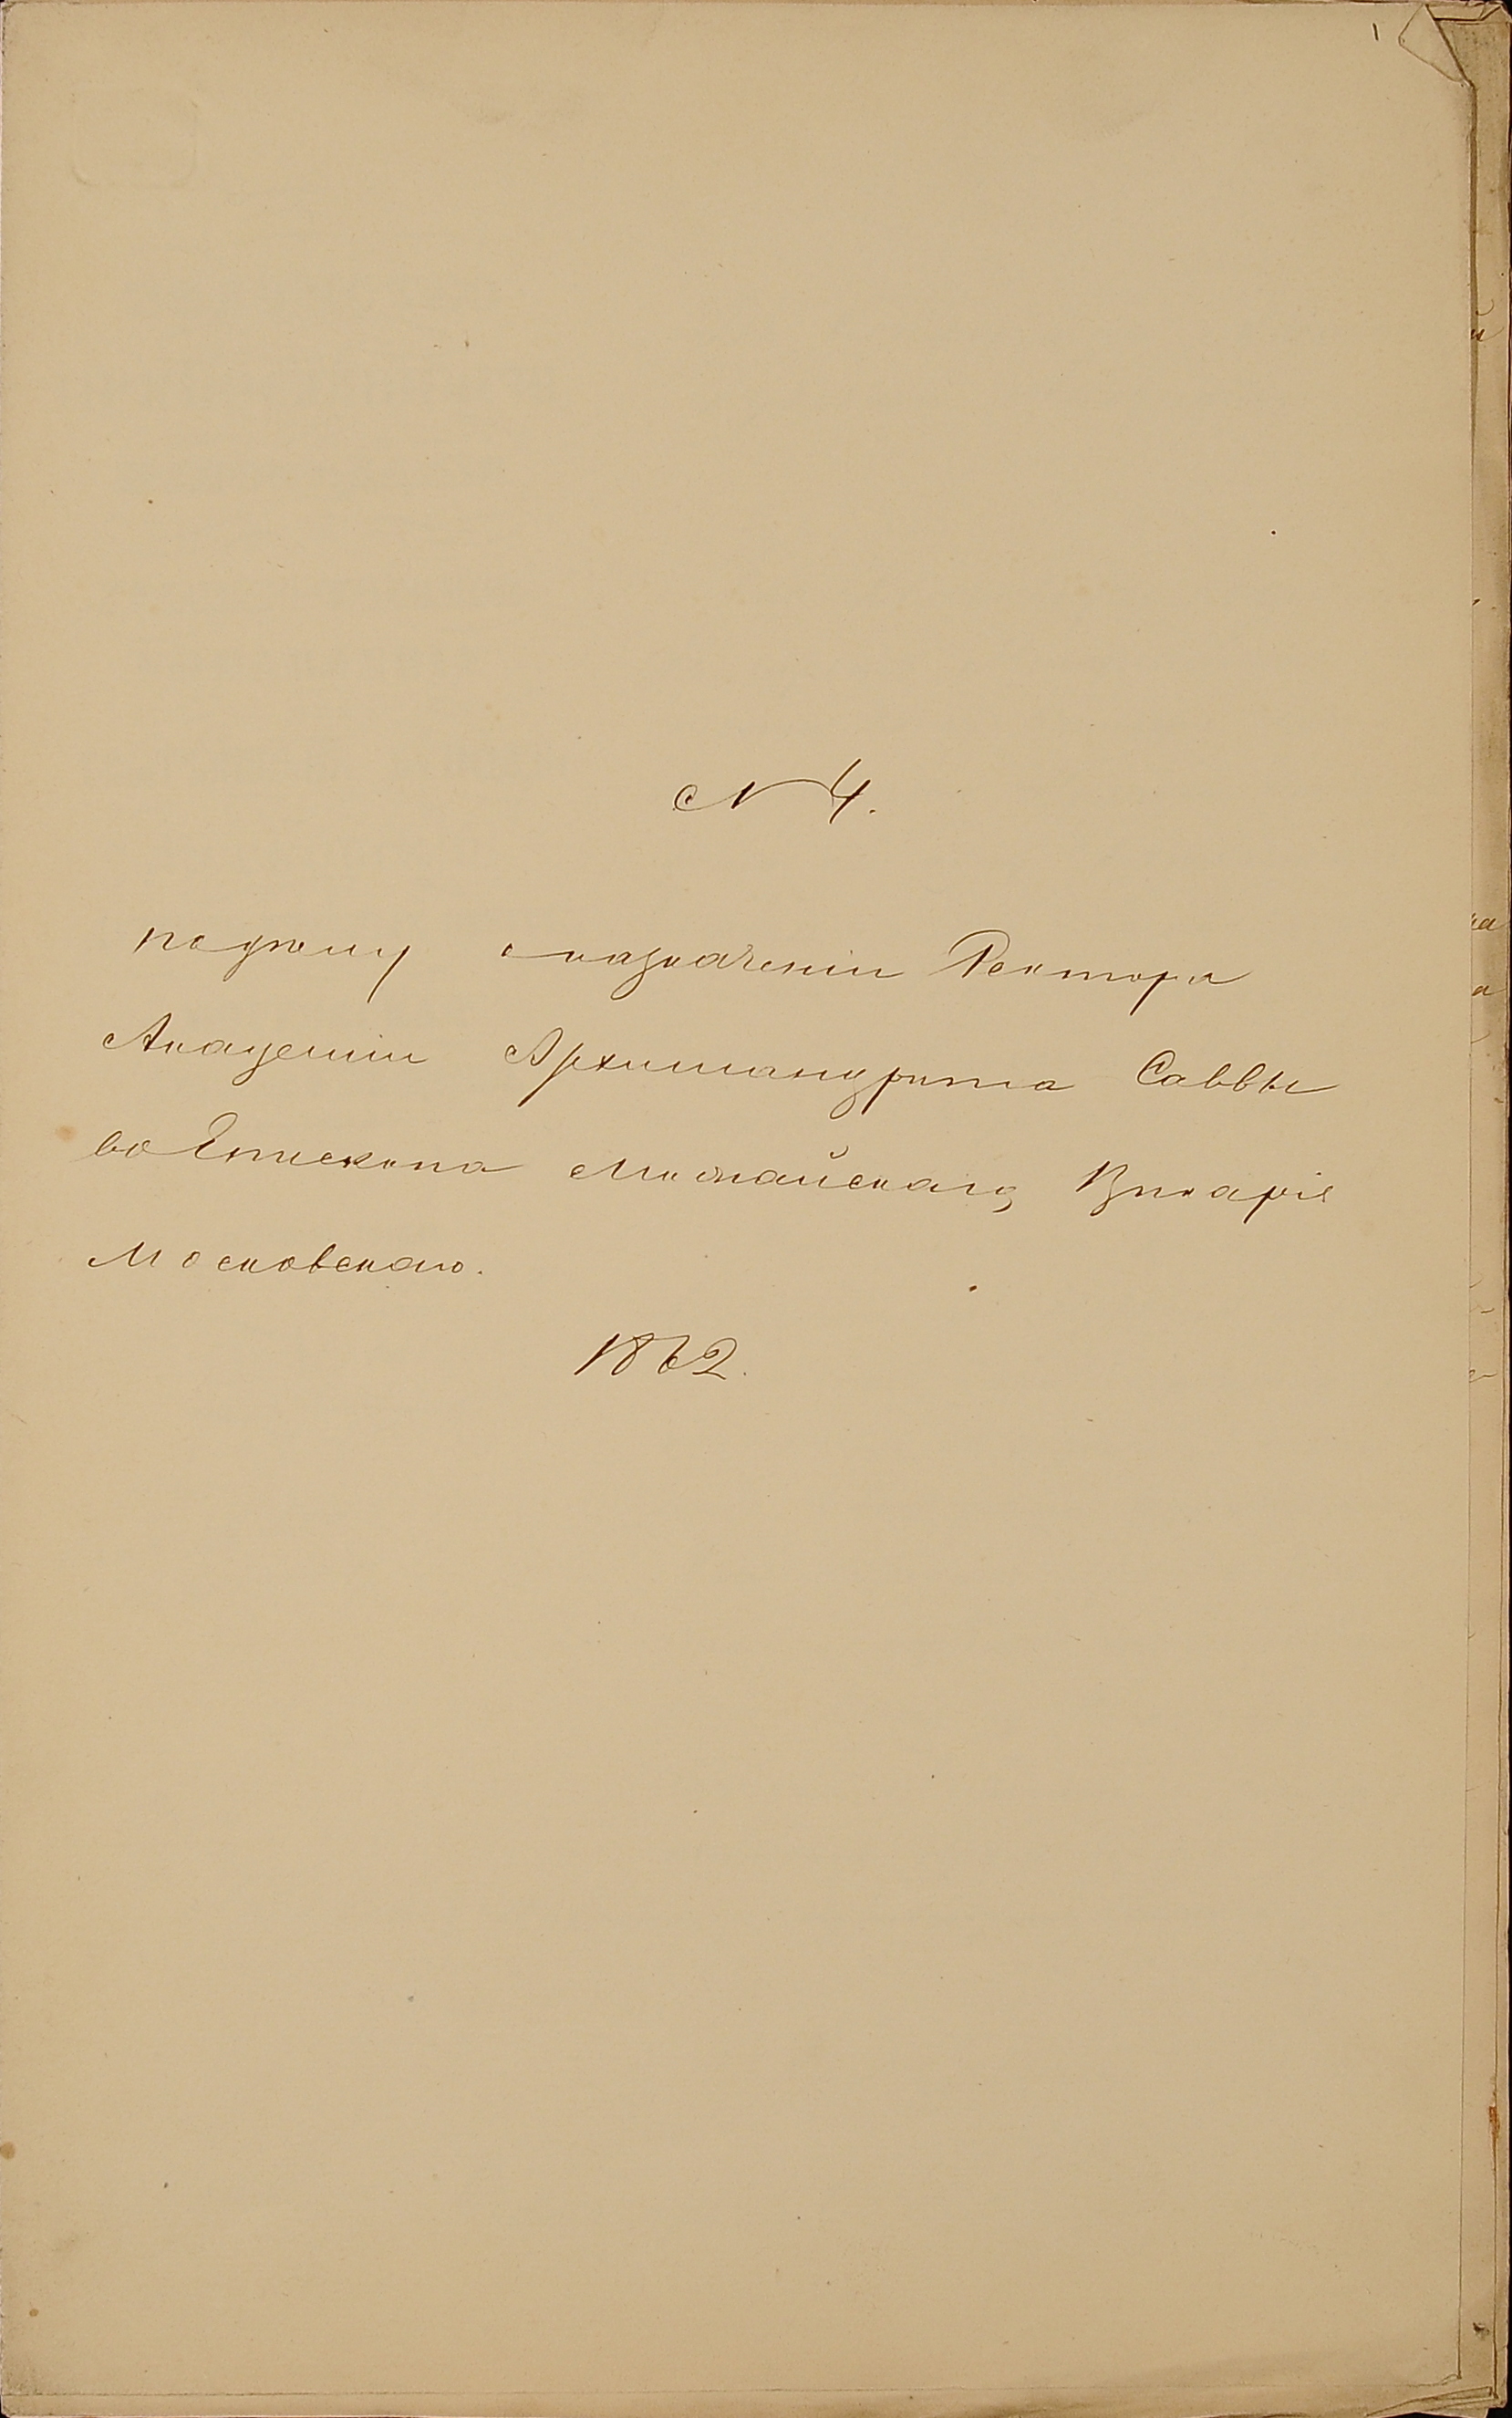 1
N 4.
по дѣлу о назначеніи Ректора
Академіи Архимандрита Саввы
во Епископа Можайскаго, Викарія
Московскаго.
1862.